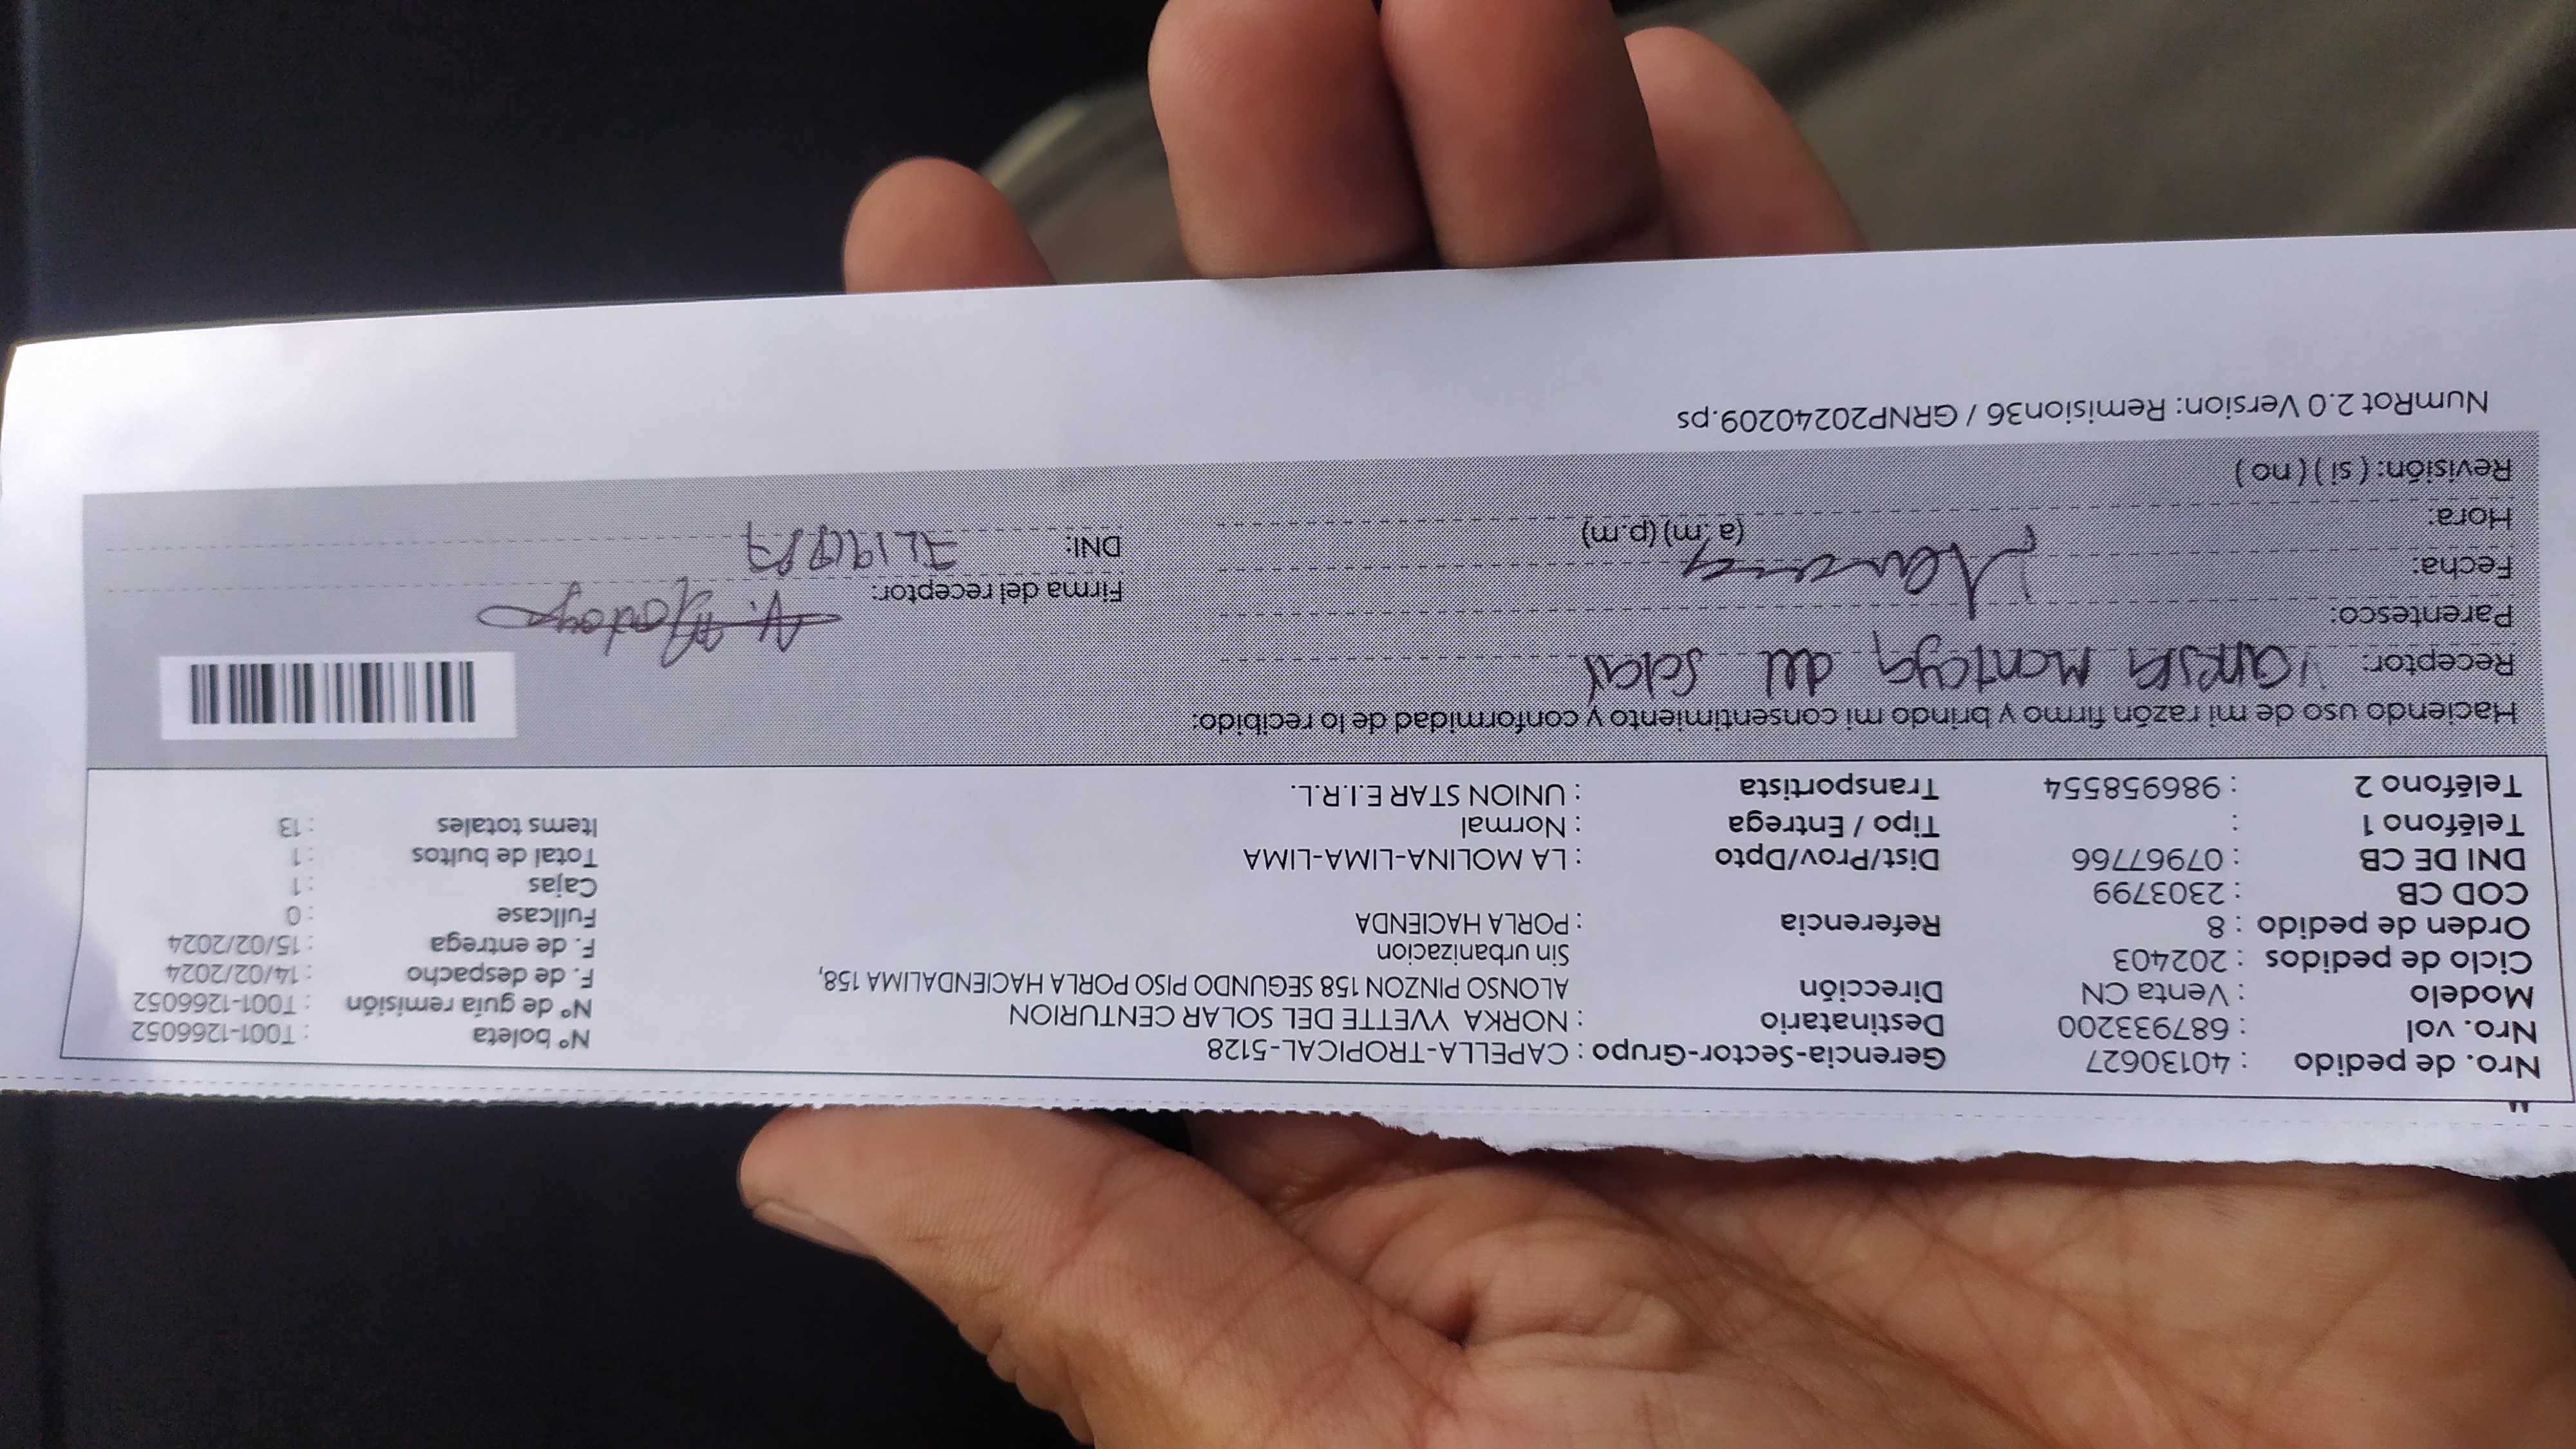 Nro. de pedido : 40130627 Gerencia-Sector-Grupo : CAPELLA-TROPICAL-5128
Nro. vol : 687933200 Destinatario : NORKA YVETTE DEL SOLAR CENTURION Nº boleta : T001-1266052
Modelo : Venta CN Dirección ALONSO PINZON 158 SEGUNDO PISO PORLA HACIENDALIMA 158, Nº de guía remisión : T001-1266052
Ciclo de pedidos : 202403 Sin urbanizacion F. de despacho : 14/02/2024
Orden de pedido : 8 Referencia : PORLA HACIENDA F. de entrega : 15/02/2024
COD CB : 2303799 Fullcase : 0
DNI DE CB : 07967766 Dist/Prov/Dpto : LA MOLINA-LIMA-LIMA Cajas : 1
Teléfono 1 : Tipo / Entrega : Normal Total de bultos : 1
Teléfono 2 : 986958554 Transportista : UNION STAR E.I.R.L. Items totales : 13
Haciendo uso de mi razón firmo y brindo mi consentimiento y conformidad de lo recibido:
Receptor: Vanessa Montoya del Solar
Parentesco: Firma del receptor:
Fecha: DNI:
Hora: (a.m) (p.m)
Revisión: ( si ) ( no )
NumRot 2.0 Version: Remision36 / GRNP20240209.ps